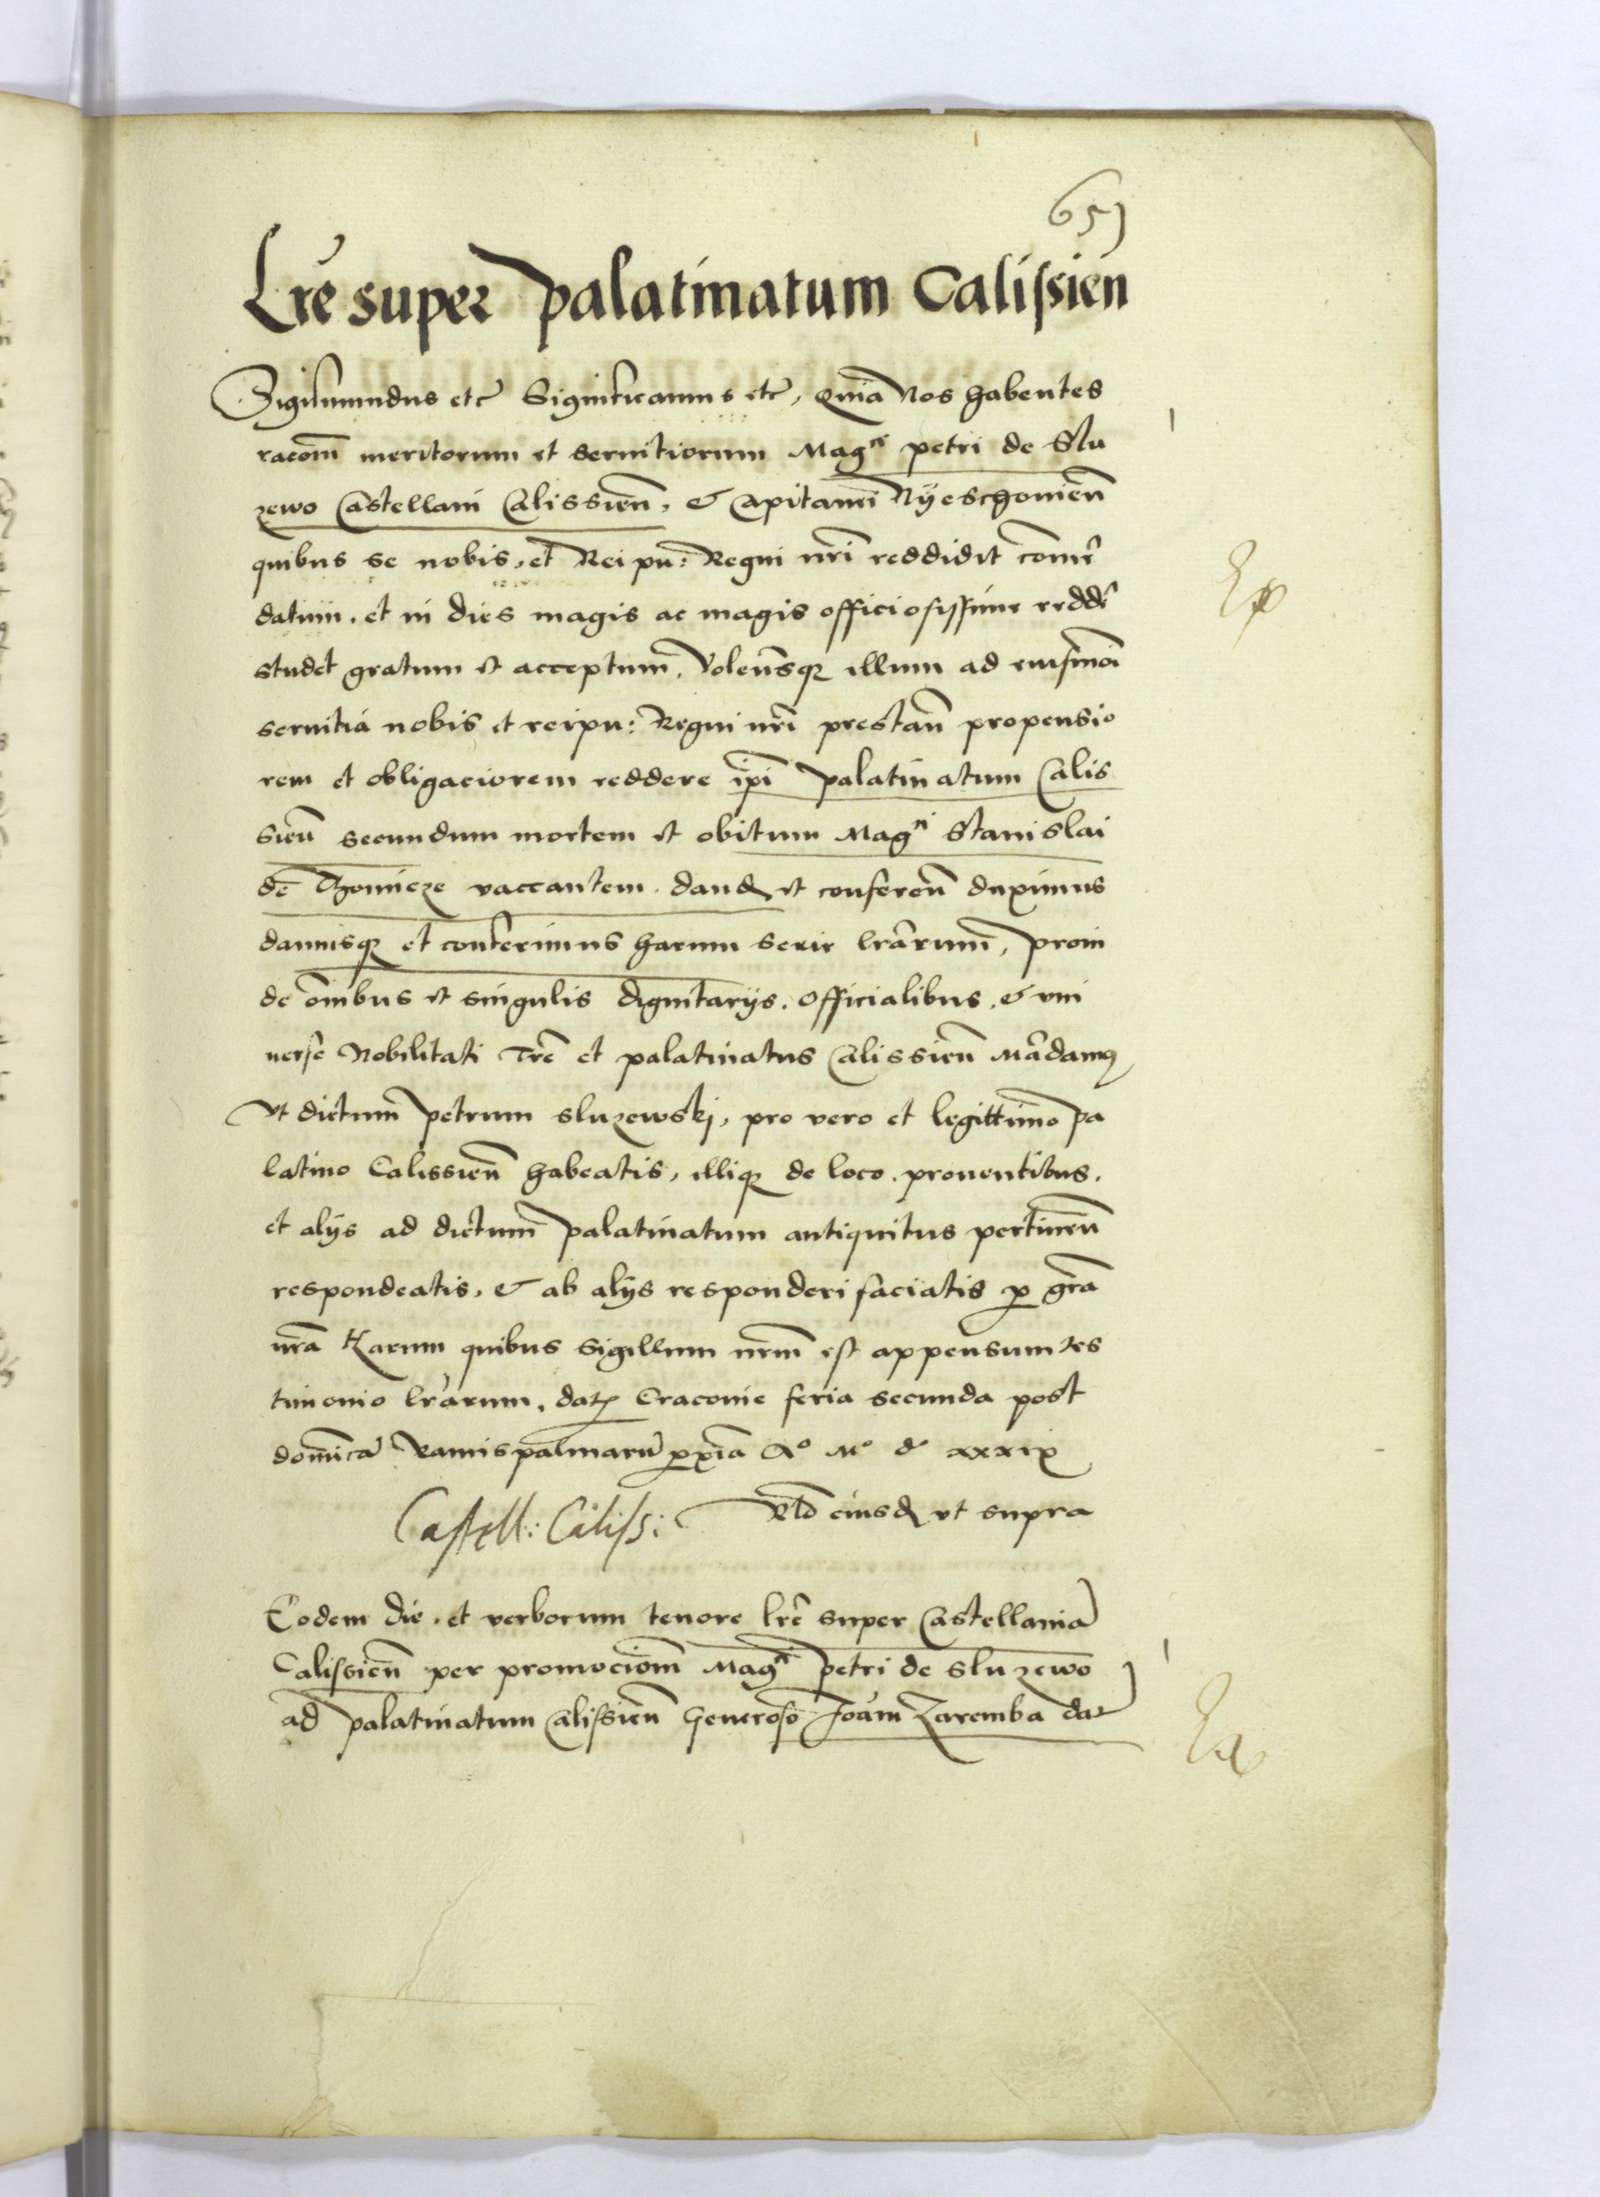 651
Lrẽ super palatinatum Calissień
Sigismundus etc̃ Significamus etc̃, Quia Nos habentes
racoñm meritorum et seruitiorum Magci petri de Slu
zewo Castellani Calissień, & Capitanei Nyeschouień
quibus se nobis, et Rei pu: Regni nr̃i reddidit com̃e
datum, et in dies magis ac magis officiosissime redde
studet gratum et acceptum, Volentesq illum ad eiusmoi
seruitia nobis et reipu: Regni nr̃i prestań propensio
rem et obligaciorem reddere ip̃i palatinatum Calis
sień secundum mortem et obitum Magci Stanislai
de vaccantem, dand et conferen duximus
damusq et conferimus harum serie lr̃arum, proin
de om̃ibus et singulis dignitarijs, officialibus, & vni
uerse Nobilitati Tr̃e et palatinatus Calissień Mãdamus
Vt dictum petrum sluzewskj, pro vero et legittimo pa
latino Calissień habeatis, illiq de loco, prouentibus,
et alijs ad dictum palatinatum antiquitus pertineń
respondeatis, & ab alijs responderi faciatis p gr̃a
nr̃a Harum quibus Sigillum nr̃m est appensum tes
timonio lr̃arum, dat Cracouie feria secunda post
dom̃ica Ramispalmarũ pxia Ao Mo d xxxix
Castell: Caliss: Rlo eiusd vt supra
Eodem die, et verborum tenore lr̃e super Castellaniã
Calissień per promocioñm Magci petri de sluzewo
ad palatinatum Calissień Generoso Joañi Zaremba dat